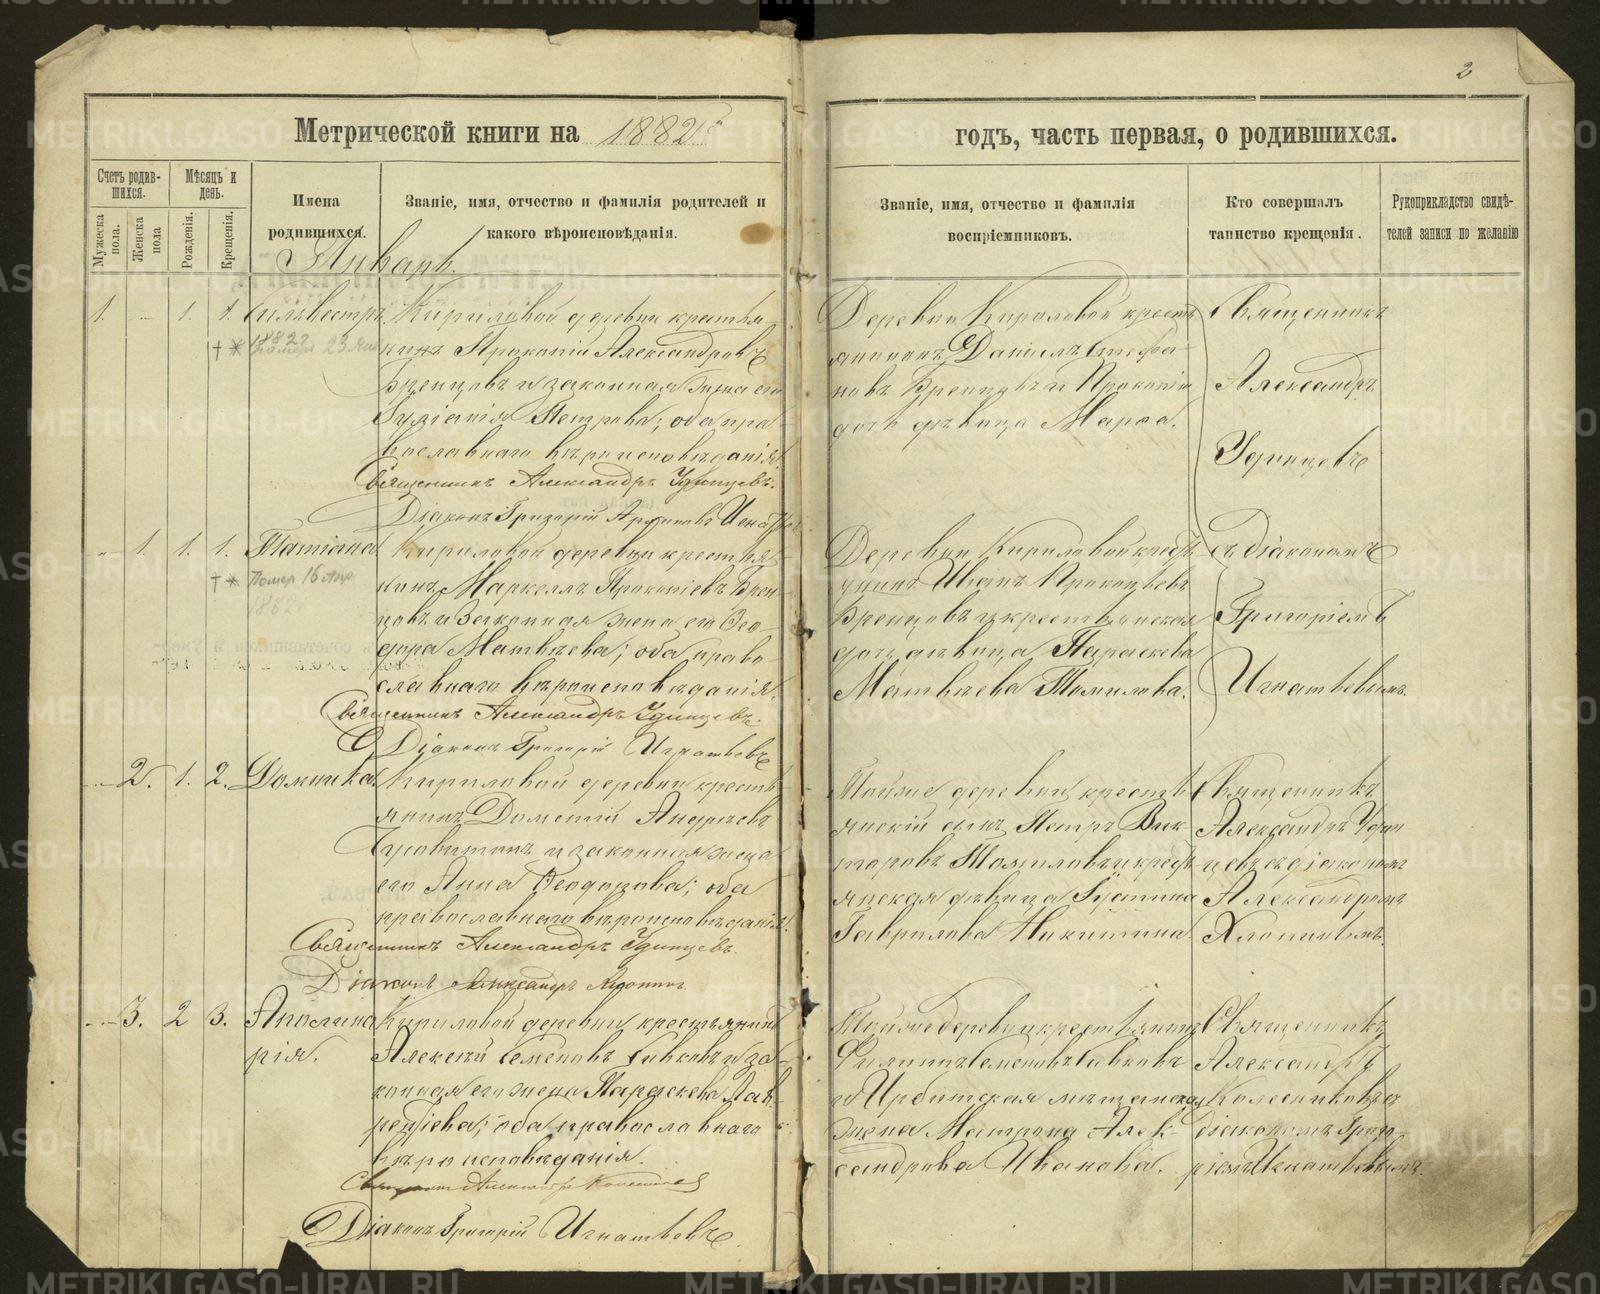 2
Метрической книги на 1882 г
годъ, часть первая, о родившихся.
Счетъ родив-
шихся.
Мужеска пола.
Женска пола
Мѣсяцъ и день.
Рожденія.
Крещенія.
Имена
родившихся.
Званіе, имя, отчество и фамилія родителей и
какого вѣроисповѣданія.
Званіе, имя, отчество и фамилія
воспріемниковъ.
Кто совершалъ
таинство крещенія.
Рукоприкладство свидѣ-
телей записи по желанію
Январь.
1. 1. 1. Сильвестръ
1882
Померъ 23 Янв
Кириловой деревни крестья-
нинъ Прокопій Александровъ
Бренцовъ и законная жена его
Іуліанія Петрова; оба пра-
вославнаго вѣроисповѣданія.
Священникъ Александръ Удинцевъ.
Діаконъ Григорій
Деревни Кириловой кресть
янинъ Даніилъ Стефа-
новъ Бренцовъ и Прокопія
дочь дѣвица Марѳа.
Священникъ
Александръ
Удинцевъ
1. 1. 1. Татіана
Померъ 16 Апр
1882
Кириловой деревни крестья
нинъ Маркеллъ Прокопіевъ Брен
цовъ и Законная жена его Ѳео-
дора Матвѣева; оба право-
славнаго вѣроисповѣданія.
Священникъ Александръ Удинцевъ.
Діаконъ Григорій Игнатьевъ
Деревни Кириловой крест
янинъ Иванъ Прокопьевъ
Бренцовъ и крестьянская
дочь дѣвица Параскева
Матвѣева Томилова.
съ діакономъ
Григоріемъ
Игнатьевымъ.
2. 1. 2. Домника.
Кириловой деревни кресть
янинъ Дометій Андреевъ
и законная жена
его Анна Ѳеодорова; оба
православнаго вѣроисповѣданія.
Священникъ Александръ Удинцевъ.
Діаконъ Александръ
Тойже деревни кресть
янскій сынъ Петръ Вик
торовъ Томиловъ и крест
янская дѣвица Іустина
Гаврилова Никитина
Священникъ
Александръ Удин
цевъ съ діакономъ
Александромъ
Хлопинымъ.
3. 2 3. Аполина
рія.
Кириловой деревни крестьянинъ
Алексѣй Семеновъ Савковъ и за-
конная его жена Параскева Лав-
рентіева; оба православнаго
вѣроисповѣданія.
Священникъ Александръ
Діаконъ Григорій Игнатьевъ
Тойже деревни крестьянинъ
Филиппъ Семеновъ Савковъ
и Ирбитская мѣщанская
жена Матрона Алек-
сандрова Иванова.
Священникъ
Александръ
Колесниковъ съ
діакономъ Григо
ріемъ Игнатьевымъ.
METRIKI.GASO-URAL.RU